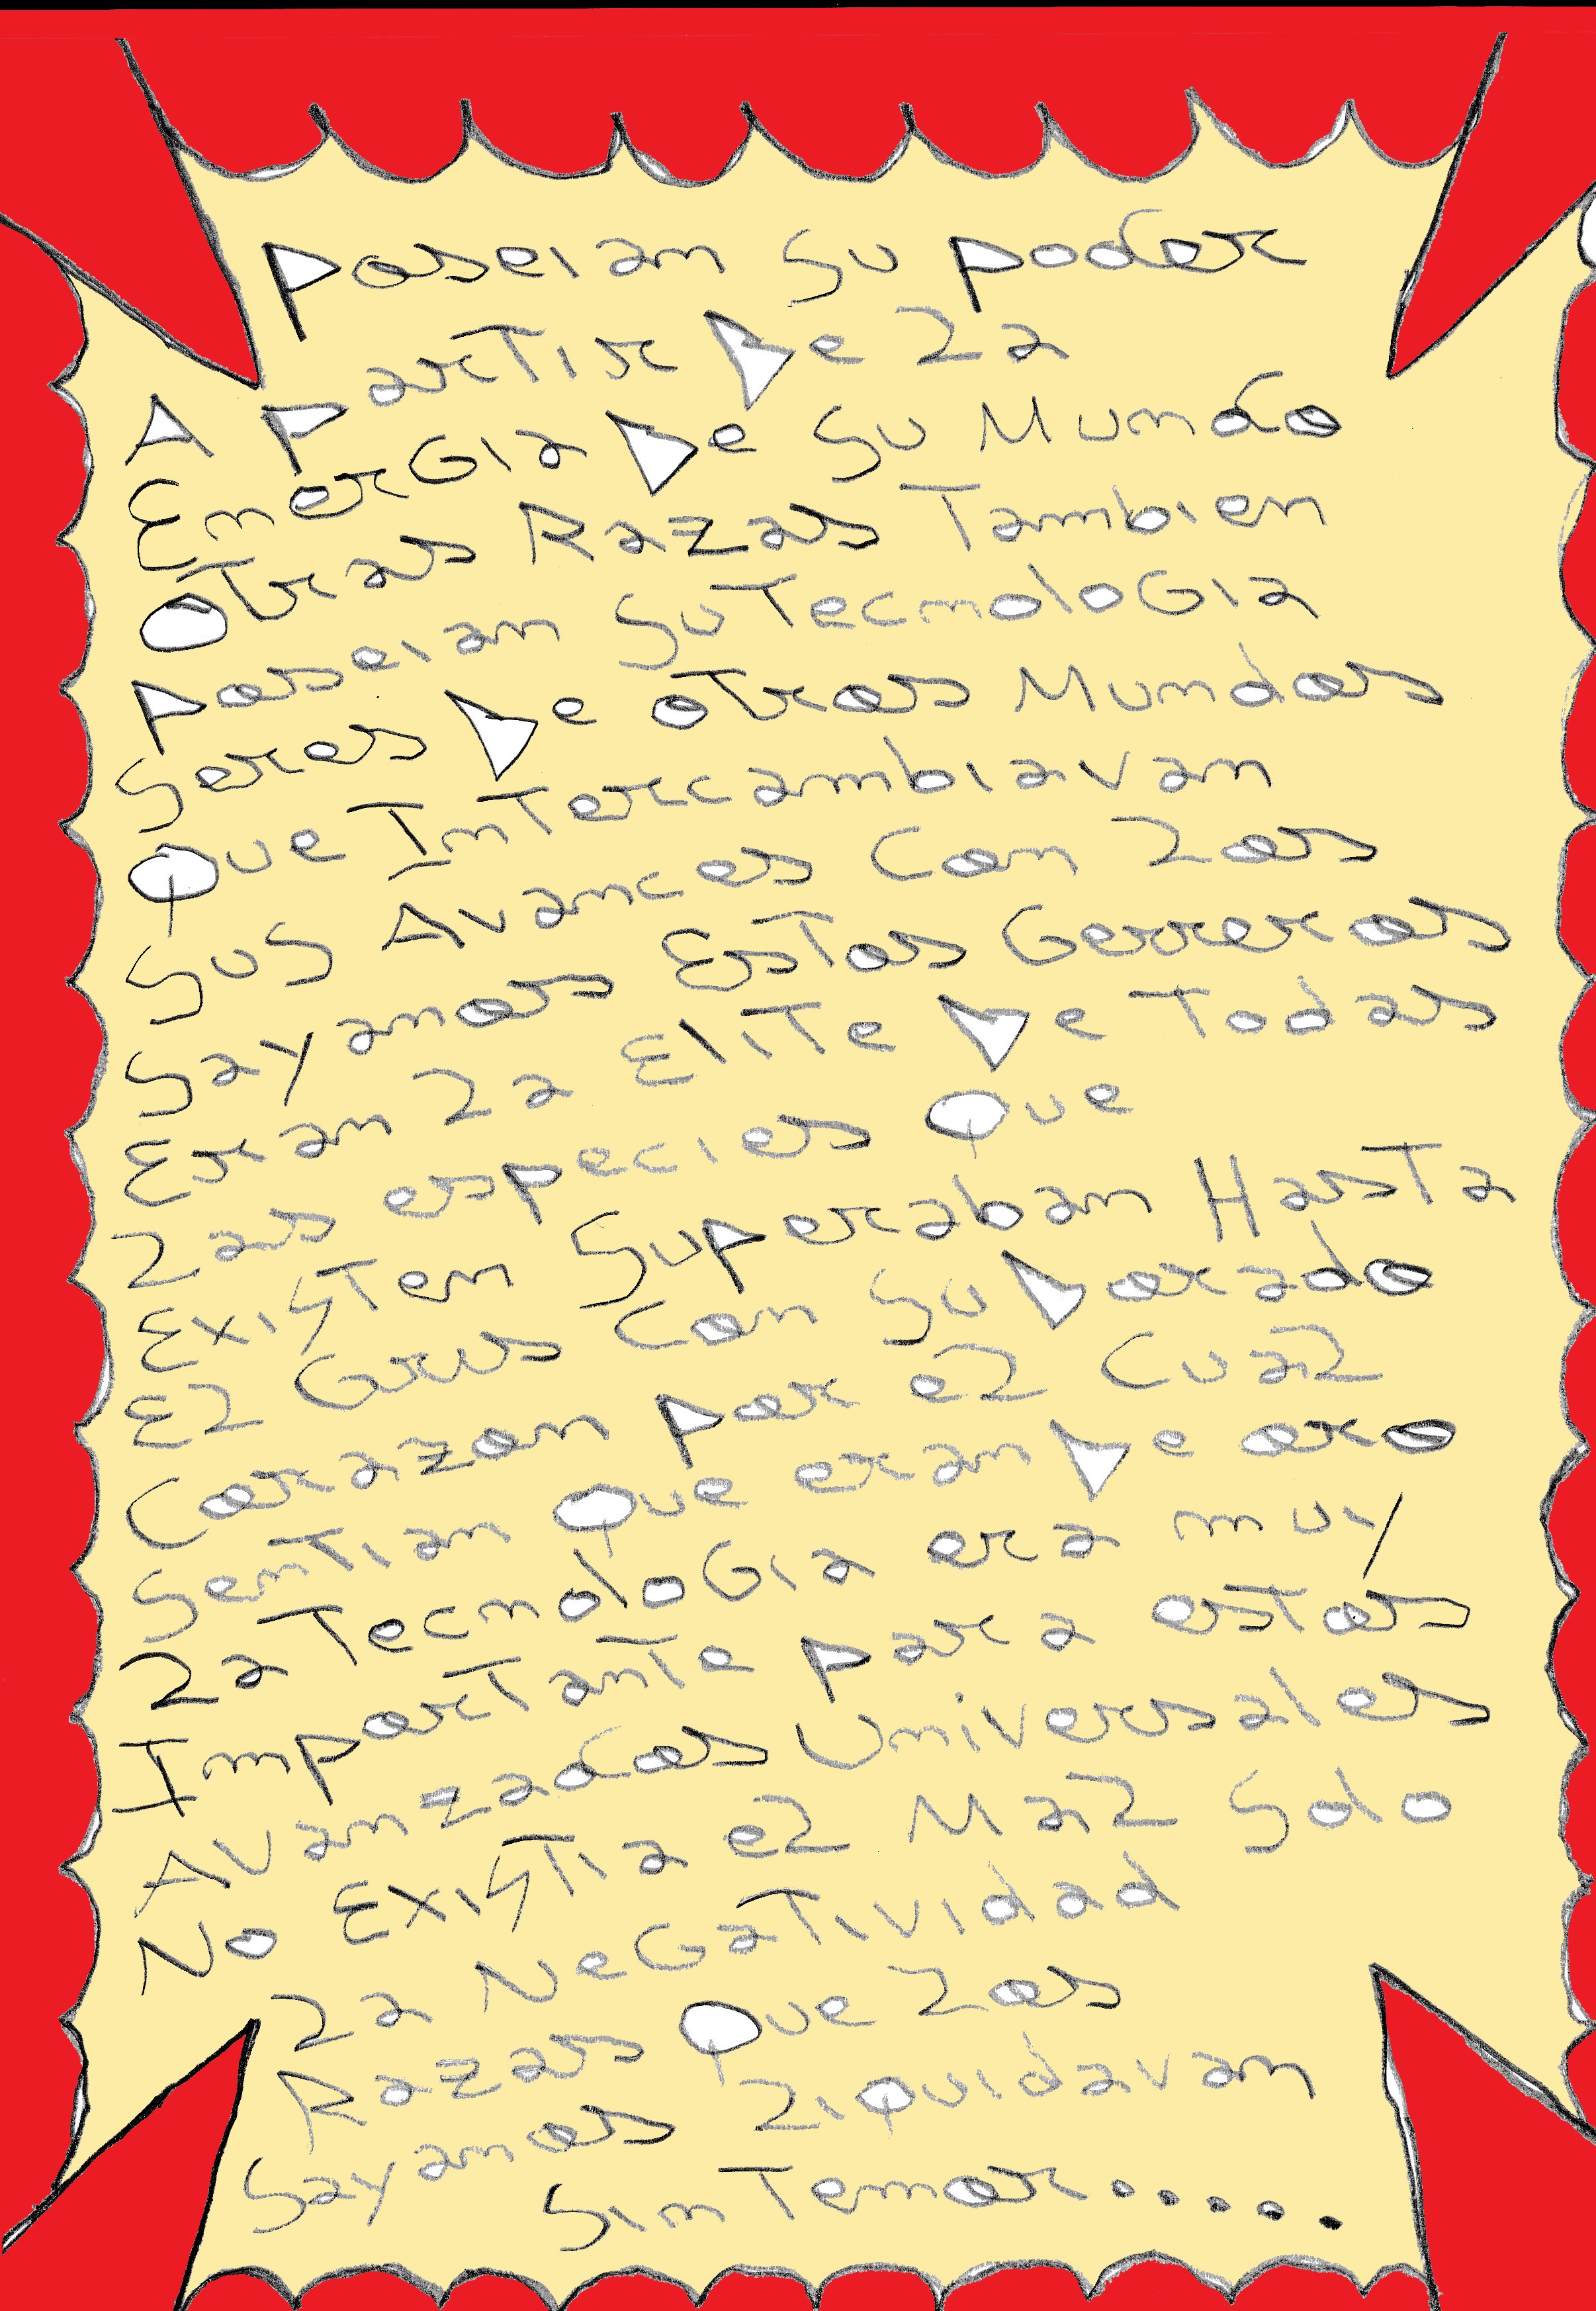 Poseian Su poder
A Partir De La
EnerGia De Su Mundo
Otras Razas Tambien
Poseian Su TecnoloGia
Seres De otros Mundos
Que Intercambiavan
Sus Avances Con Los
Sayanos Estos Gerreros
Eran La Elite De Todas
Las especies Que
Existen Superaban Hasta
El Grus Con Su Dorado
Corazon Por el Cual
Sentian Que eran De oro
La TecnoloGia era muy
Importante Para estos
Avanzados Universales
No Existia el Mal Solo
La NeGatividad
Razas Que Los
Sayanos Liquidavan
Sin Temor.....